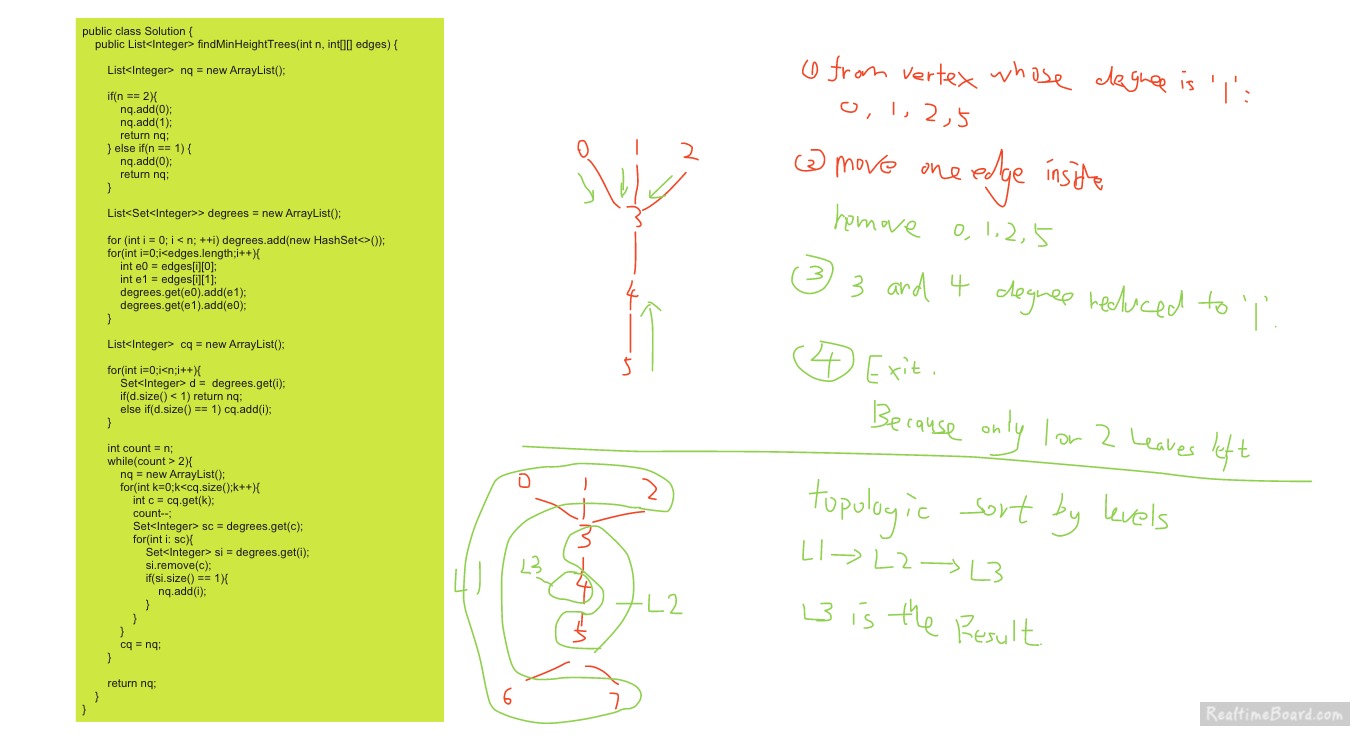 public class Solution {
public List<Integer> findMinHeightTrees(int n, int[][] edges) {
List<Integer> nq = new ArrayList();
if(n == 2){
nq.add(0);
nq.add(1);
return nq;
} else if(n == 1) {
nq.add(0);
return nq;
}
List<Set<Integer>> degrees = new ArrayList();
for (int i = 0; i < n; ++i) degrees.add(new HashSet<>());
for(int i=0;i<edges.length;i++){
int e0 = edges[i][0];
int e1 = edges[i][1];
degrees.get(e0).add(e1);
degrees.get(e1).add(e0);
}
List<Integer> cq = new ArrayList();
for(int i=0;i<n;i++){
Set<Integer> d = degrees.get(i);
if(d.size() < 1) return nq;
else if(d.size() == 1) cq.add(i);
}
int count = n;
while(count > 2){
nq = new ArrayList();
for(int k=0;k<cq.size();k++){
int c = cq.get(k);
count--;
Set<Integer> sc = degrees.get(c);
for(int i: sc){
Set<Integer> si = degrees.get(i);
si.remove(c);
if(si.size() == 1){
nq.add(i);
}
}
}
cq = nq;
}
return nq;
}
}
0 1 2
3
4
5
① from vertex whose degree is '1':
0, 1, 2, 5
② move one edge inside
remove 0, 1, 2, 5
③ 3 and 4 degree reduced to '1'.
④ Exit.
Because only 1 or 2 leaves left
0 1 2
3
L3 4
L1 L2
5
6 7
topologic sort by levels
L1 → L2 → L3
L3 is the Result.
RealtimeBoard.com